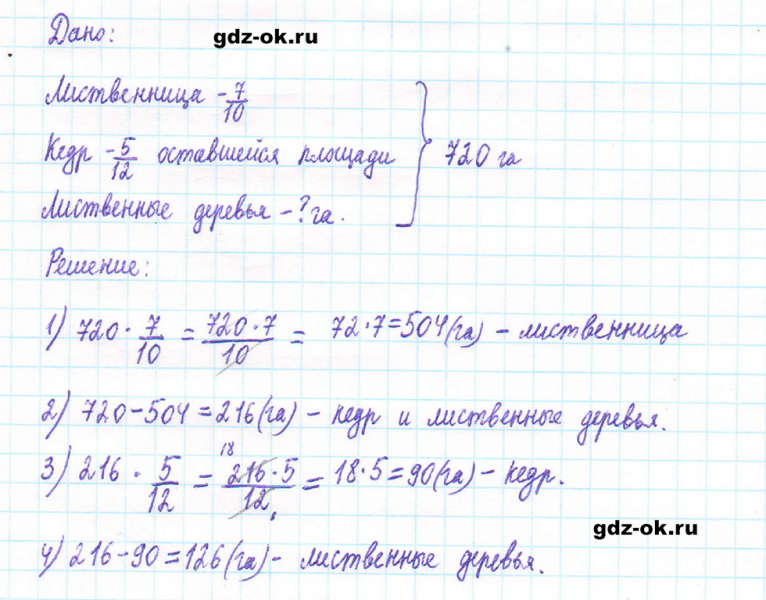 Дано:
gdz-ok.ru
Лиственница - 7/10
Кедр - 5/12 оставшейся площади } 720 га
Лиственные деревья - ? га.
Решение:
1) 720 · 7/10 = 720·7/10 = 72·7=504(га) - лиственница
2) 720-504=216(га) - кедр и лиственные деревья.
3) 216 · 5/12 = 18 216·5/12 1 = 18·5=90(га) - кедр.
gdz-ok.ru
4) 216-90=126(га) - лиственные деревья.